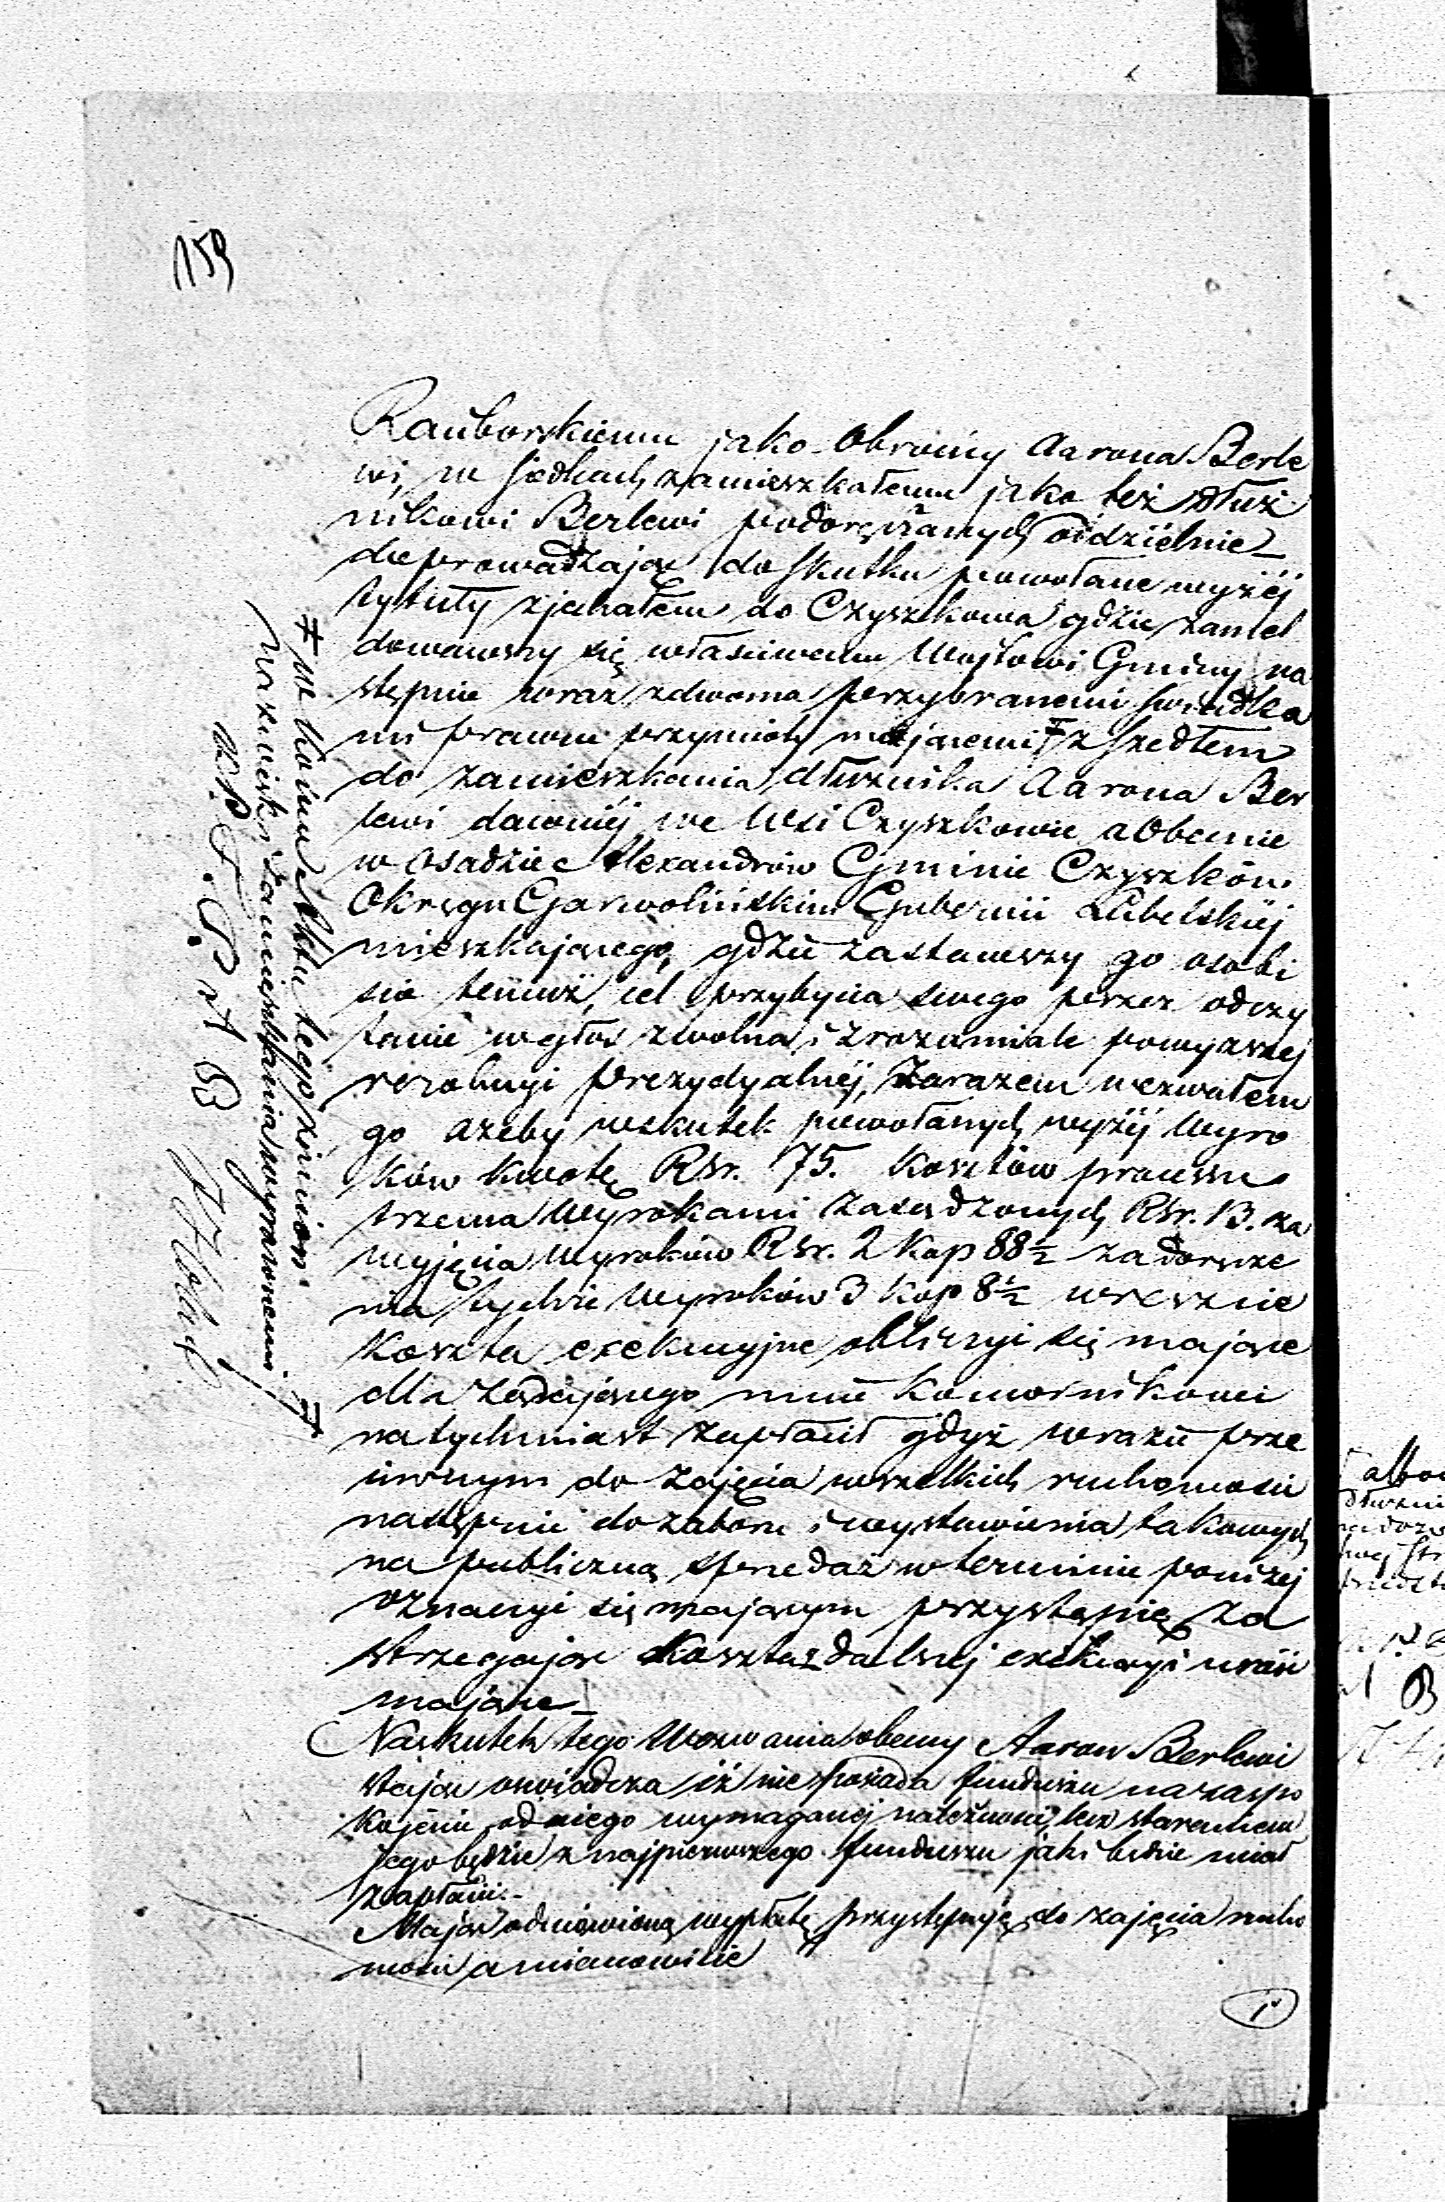 159
Rauborskiemu jako Obrońcy Aarona Berle
wi, w Siedlcach zamieszkałemu jako też dłuż
nikowi Berlewi podoręczanych oddzielnie
doprowadzając do skutku powołane wyżéj
tytuły zjechałem do Czyszkowa gdzie zamel
dowawszy się właściwemu Wójtowi Gminy na
stępnie wraz z dwoma przybranemi świadka
mi prawne przymioty mającemi ⌗ zszedłem
do zamieszkania dłużnika Aarona Ber
lewi dawniéj we Wsi Czyszkowie a Obecnie
w Osadzie Alexandrów Gminie Czyszków
Okręgu Garwolińskim Gubernii Lubelskiéj
mieszkającego, gdzie zastawszy go osobi
ście temuż, cel przybycia swego przez odczy
tanie w głos zwolna i zrozumiale powyższej
rezolucyi prezydyalnéj, zarazem wezwałem
go ażeby wskutek powołanych wyżéj Wyro
ków kwotę Rsr. 75. kosztów processu
trzema Wyrokami zasądzonych Rsr. 13. za
wyjęcia Wyroków Rsr. 2 kop 88½ za doręcze
nia tychże Wyroków 3 kop 8½ wreszcie
koszta exekucyjne obliczyć się mające
dla mnie Komornikowi
natychmiast zapłacił gdyż w razie prze
ciwnym do zajęcia wszelkich ruchomości
następnie do zaboru i wystawienia takowych
na publiczną sprzedaż w terminie poniżej
oznaczyć się mającym przystąpię za
strzegając koszta z dalszej exekucyi uróść
mające
Naskutek tego Wezwania obecny Aaron Berlewi
stając oświadcza iż nie posiada funduszu na zaspo
kojenie od niego wymaganej należności, lecz staraniem
Jego będzie z najpierwszego funduszu jaki będzie miał
zapłacić.
Mając odmówioną wypłatę przystępuję do zajęcia rucho
mości a mianowicie
⌗ w końcu Aktu tego z imion
nazwisk i zamieszkania wyrażonemi ⌗
A B
1